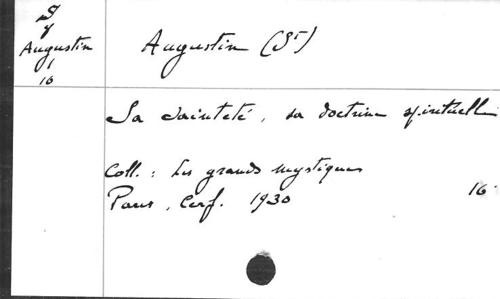 Augustin
1
10
Augustin (St)
Sa Sainteté, sa doctrine spirituelle
Coll. : Les grands mystiques
Paris, Cerf. 1930 16